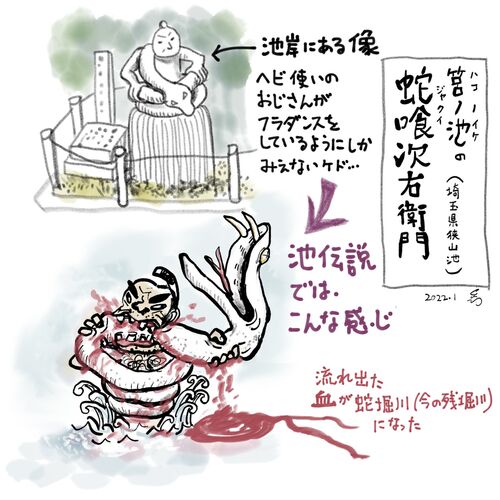 筥ノ池の
ハコノイケ
蛇喰次右衛門
ジャクイ
（埼玉県狭山池）
2022.1
池岸にある像
ヘビ使いの
おじさんが
フラダンスを
しているようにしか
みえないケド…
池伝説
では、
こんな感じ
流れ出た
血が蛇堀川（今の残堀川）
になった